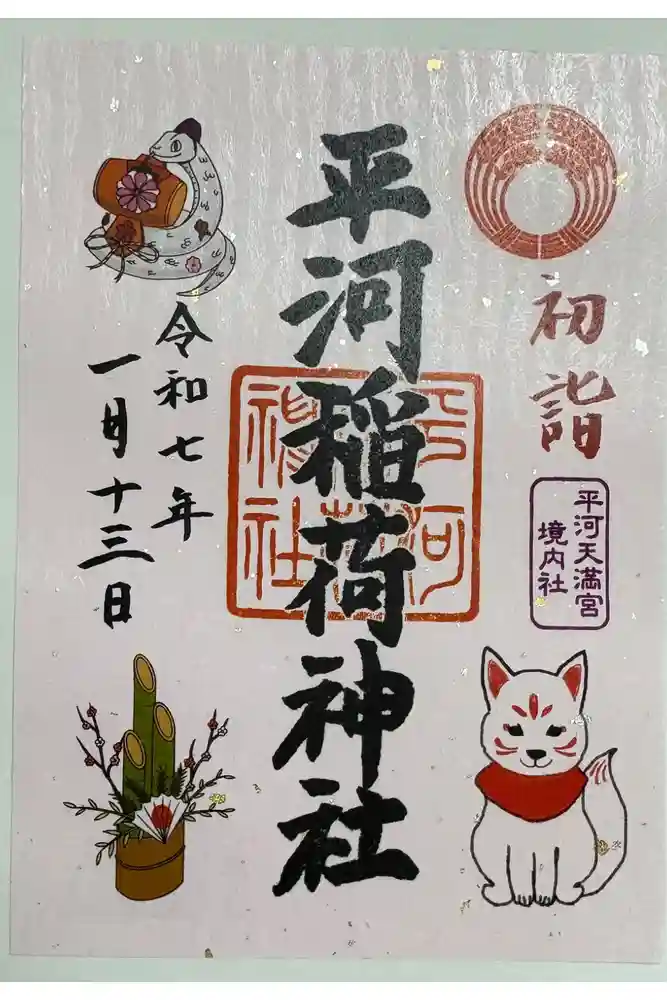 初詣
平河天満宮
境内社
平河稲荷神社
平河
稲荷
神社
令和七年
一月十三日